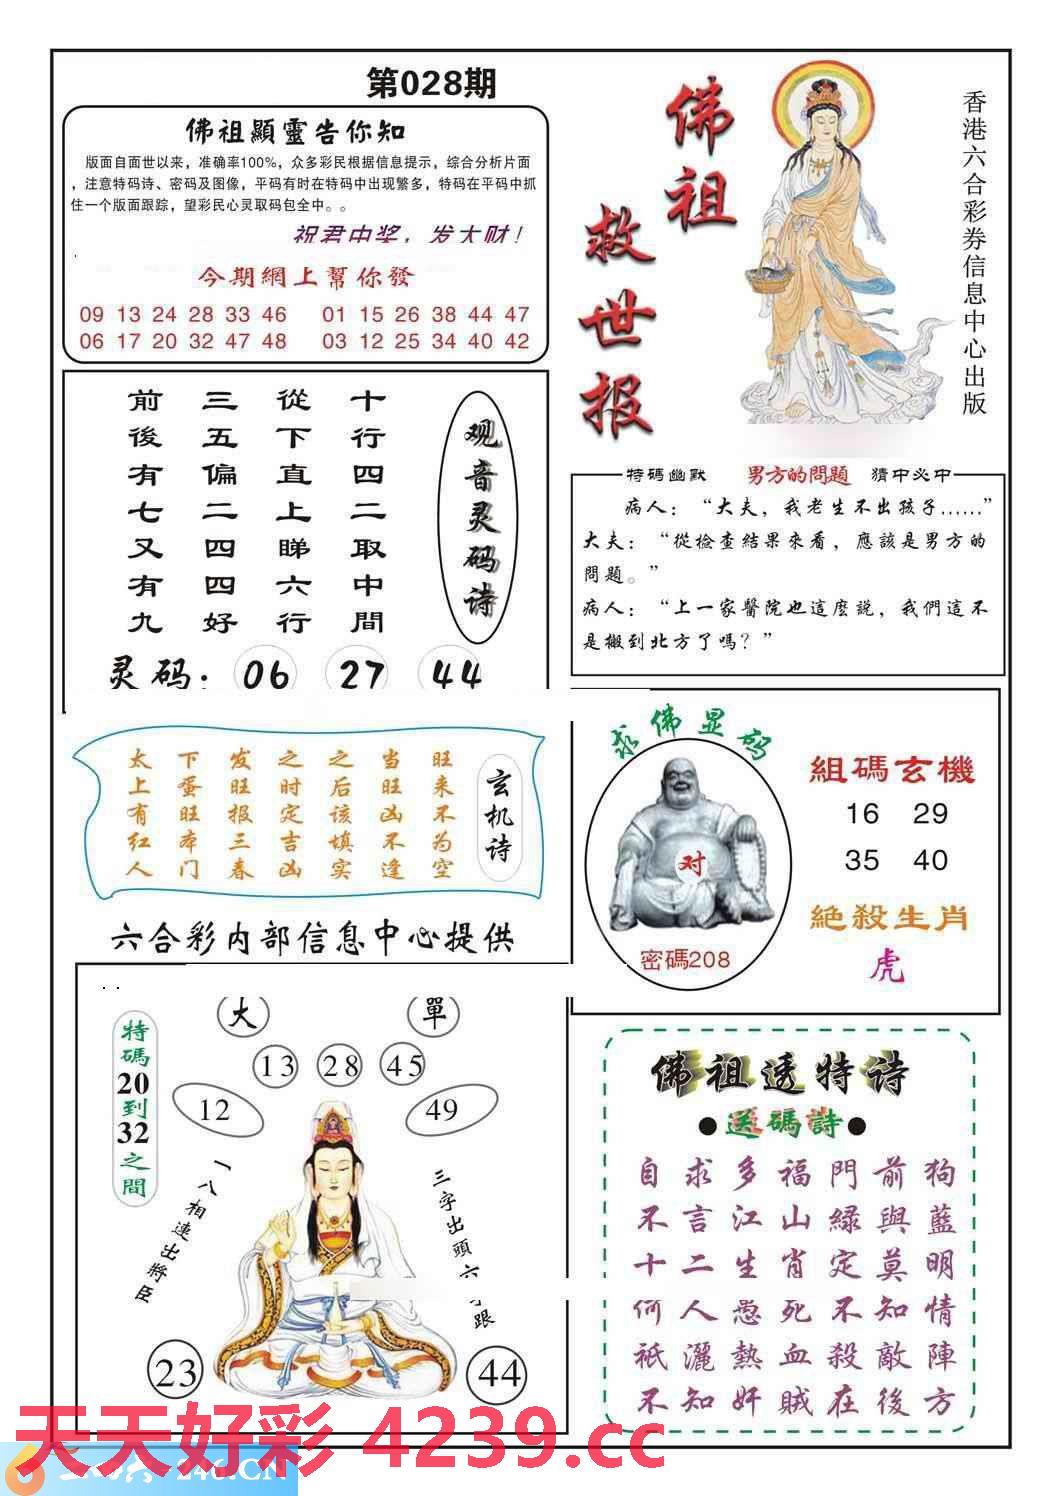 第028期
佛祖顯靈告你知
版面自面世以来，准确率100%，众多彩民根据信息提示，综合分析片面
，注意特码诗、密码及图像，平码有时在特码中出现繁多，特码在平码中抓
住一个版面跟踪，望彩民心灵取码包全中。。
祝君中奖，发大财！
今期網上幫你發
09 13 24 28 33 46 01 15 26 38 44 47
06 17 20 32 47 48 03 12 25 34 40 42
佛祖
救世报
香港六合彩券信息中心出版
观音灵码诗
十行四二取中間
從下直上睇六行
三五偏二四四好
前後有七又有九
灵码：06 27 44
特碼幽默 男方的問題 猜中必中
病人：“大夫，我老生不出孩子……”
大夫：“從檢查結果來看，應該是男方的
問題。”
病人：“上一家醫院也這麼説，我們這不
是搬到北方了嗎？”
玄机诗
旺来不为空
当旺凶不逢
之后该填实
之时定吉凶
发旺报三春
下蛋旺本门
太上有红人
六合彩内部信息中心提供
求佛显码
对
密碼208
組碼玄機
16 29
35 40
絕殺生肖
虎
特碼20到32之間
大
單
13 28 45
12
49
一八相連出將臣
三字出頭六 跟
23
44
佛祖透特诗
●送碼詩●
自求多福門前狗
不言江山綠與藍
十二生肖定莫明
何人愚死不知情
祇灑熱血殺敵陣
不知奸賊在後方
天天好彩 4239.cc
246.CN